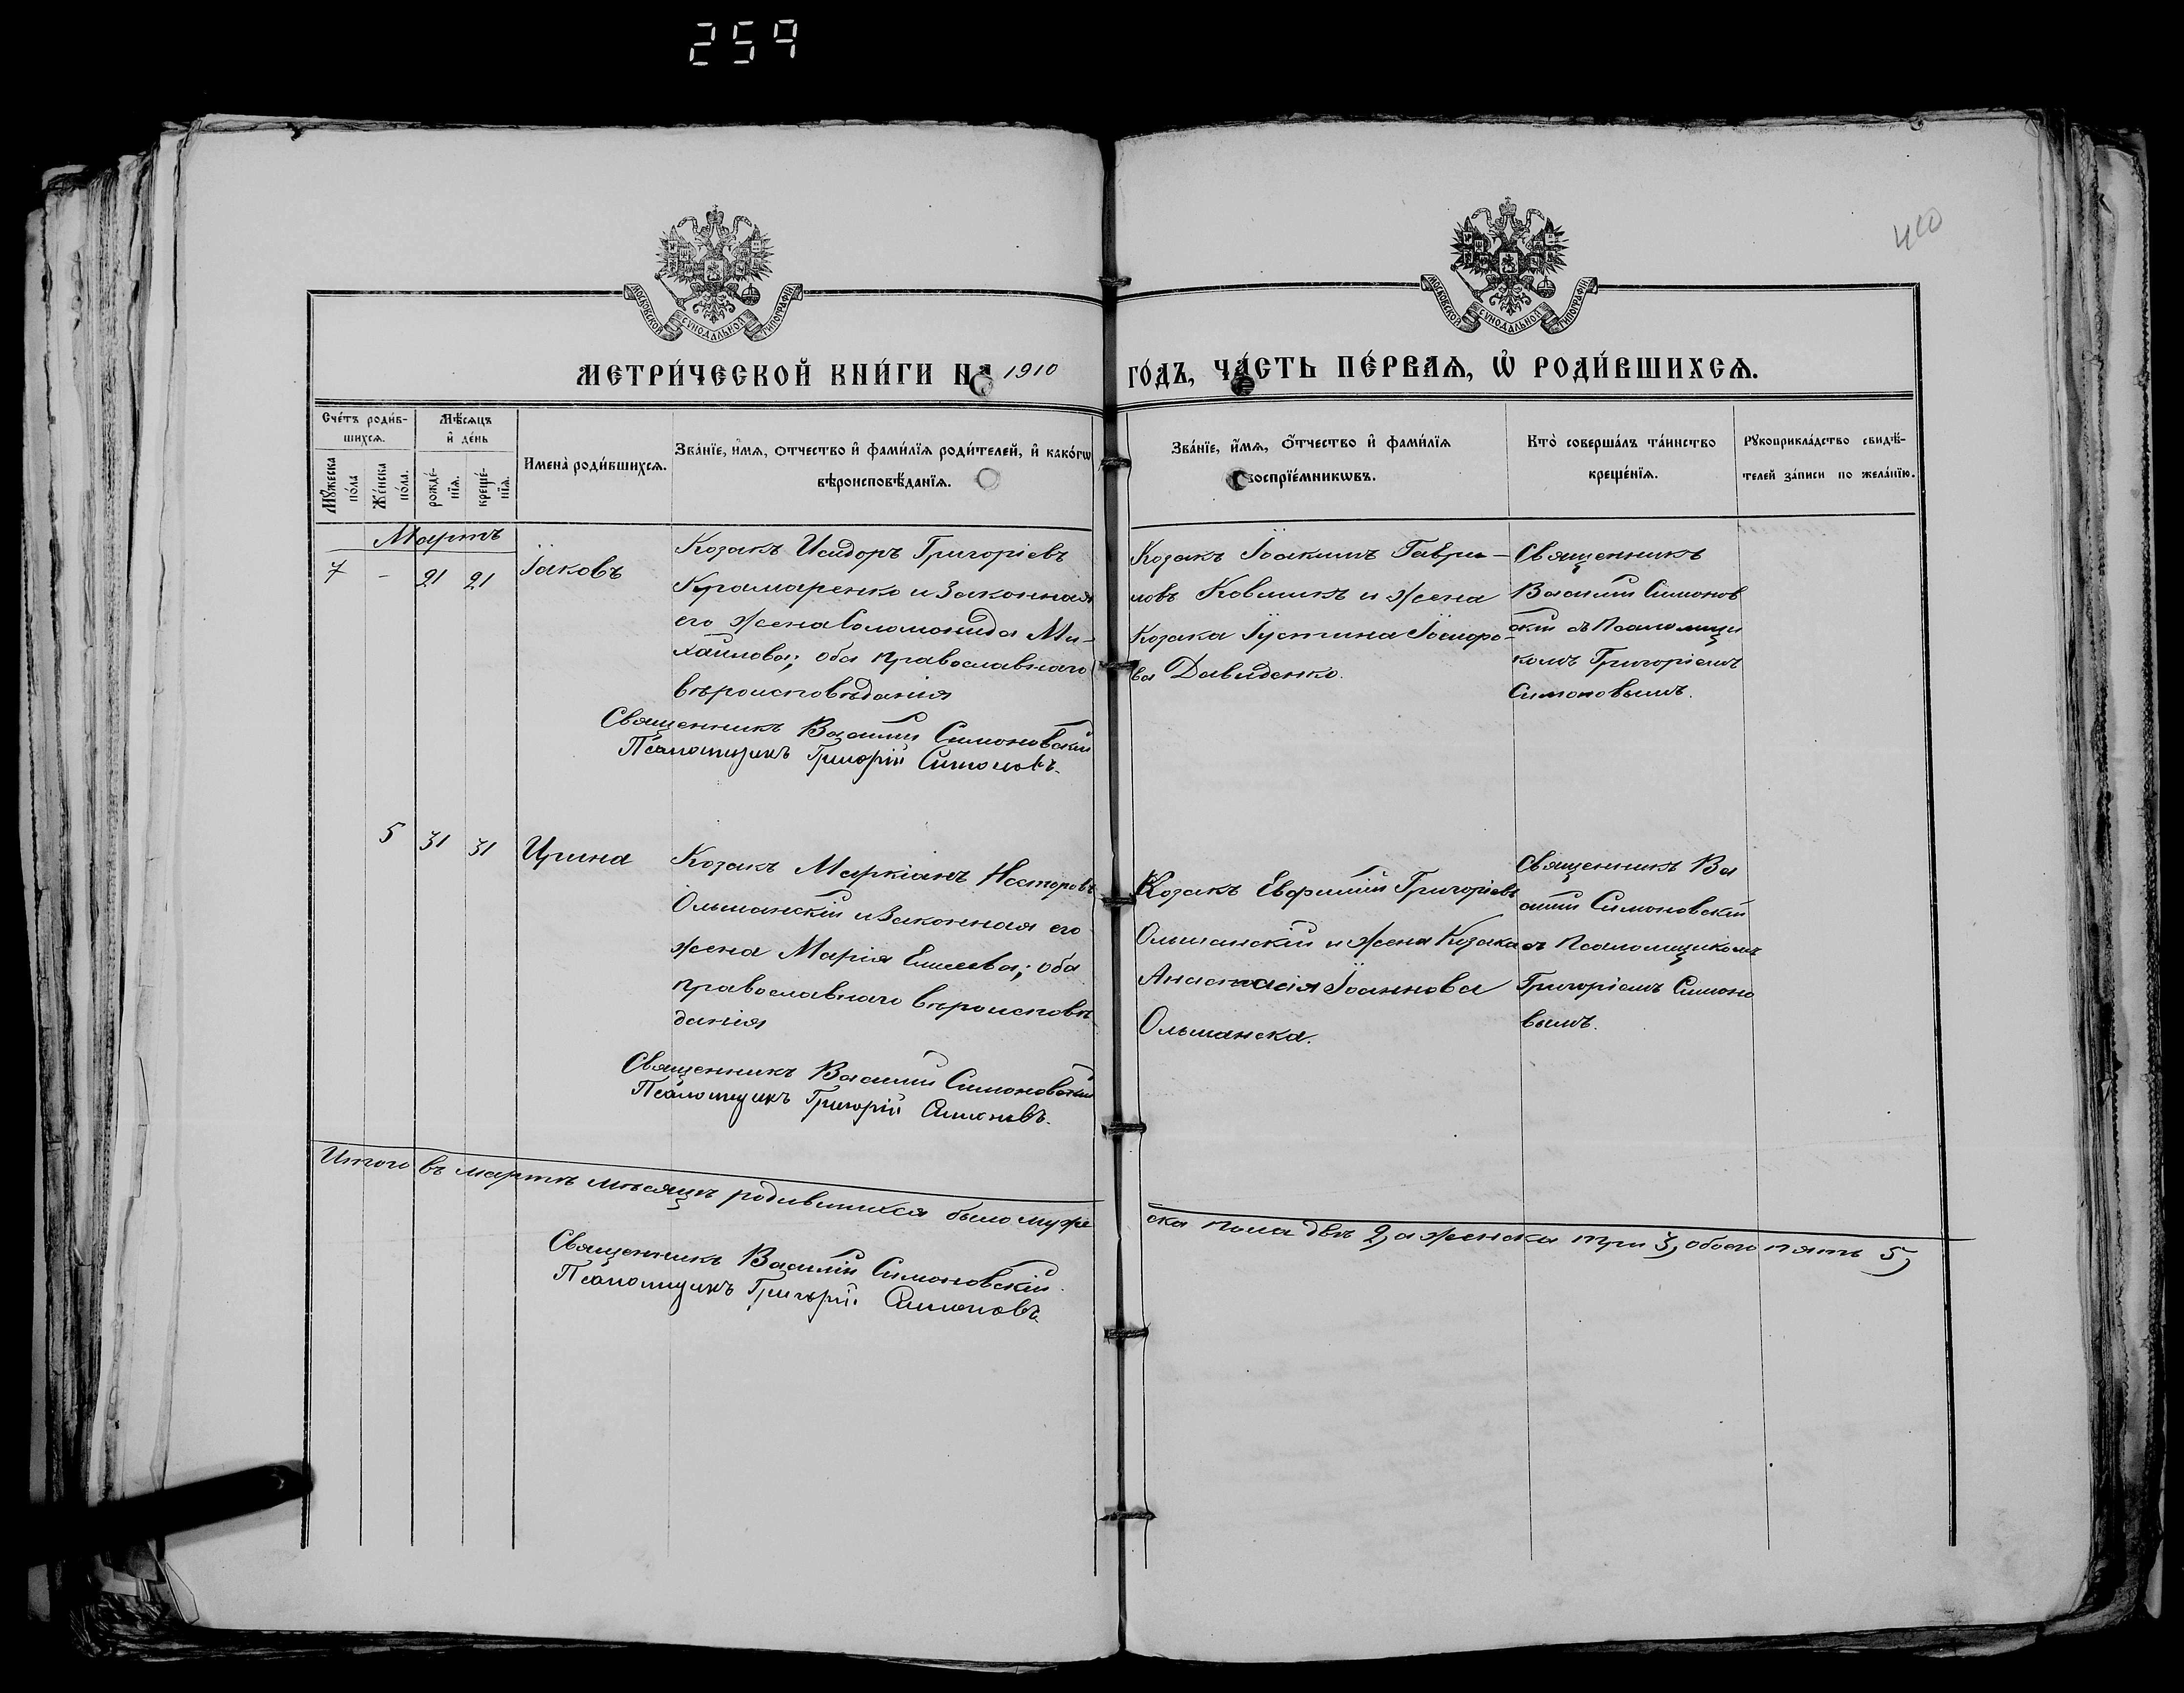 259
410
МОСКОВСКОЙ СУНОДАЛЬНОЙ ТИПОГРАФІИ
МОСКОВСКОЙ СУНОДАЛЬНОЙ ТИПОГРАФІИ
МЕТРИ́ЧЕСКОЙ КНИ́ГИ НА 1910 ГО́ДЪ, ЧА́СТЬ ПЕ́РВАѦ, Ѡ҆ РОДИ́ВШИХСѦ.
Сче́тъ роди́в-
шихсѧ.
Мѣ́сѧцъ
и҆ де́нь
Мꙋ́жеска
по́ла
Же́нска
по́ла.
рожде́-
нїѧ.
креще́-
нїѧ.
Имена̀ роди́вшихсѧ.
Зва́нїе, и҆́мѧ, ѻтчество и҆ фами́лїѧ роди́телей, и҆ како́гѡ
вѣроисповѣ́данїѧ.
Зва́нїе, и҆́мѧ, ѻ҆́тчество и҆ фами́лїѧ
воспрїе́мникѡвъ.
Кто̀ соверша́лъ та́инство
креще́нїѧ.
Рꙋкоприкла́дство свидѣ́-
телей за́писи по жела́нїю.
Мартъ
7 - 21 21 Іаковъ
Козакъ Исидоръ Григоріевъ
Крамаренко и законная
его жена Соломонида Ми-
хайлова; оба православнаго
вѣроисповѣданія
Священникъ Василій Симоновскій
Псаломщикъ Григорій Симоновъ.
Козакъ Іоакимъ Гаври-
ловъ Ковшикъ и жена
Козака Іустина Ісидоро-
ва Давиденко.
Священникъ
Василій Симонов
скій съ Псаломщи
комъ Григоріемъ
Симоновымъ.
5 31 31 Ирина
Козакъ Маркіанъ Несторовъ
Ольшанскій и законная его
жена Марія Елисеева; оба
православнаго вѣроисповѣ
данія
Священникъ Василій Симоновскій
Псаломщикъ Григорій Симоновъ.
Козакъ Евфимій Григоріевъ
Ольшанскій и жена Козака
Анастасія Іоаннова
Ольшанска.
Священникъ Ва
силій Симоновскій
съ Псаломщикомъ
Григоріемъ Симоно
вымъ.
Итого въ мартѣ мѣсяцѣ родившихся было муже
ска пола двѣ 2, а женска три 3, обоего пять 5,
Священникъ Василій Симоновскій.
Псаломщикъ Григорій Симоновъ.